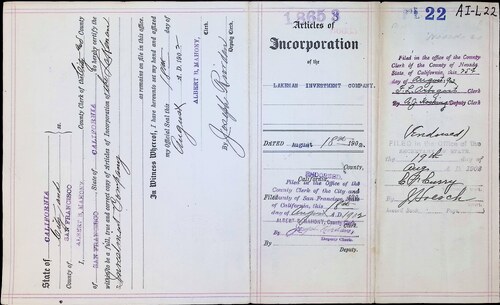 State of CALIFORNIA
City and County of SAN FRANCISCO } ss.
I, ALBERT B. MAHONY, County Clerk of said City and County
of SAN FRANCISCO State of CALIFORNIA do hereby certify the
within to be a full, true and correct copy of Articles of Incorporation of the Lakeman
Investment Company
as remains on file in this office.
In Witness Whereof, I have hereunto set my hand and affixed
my Official Seal this 18th day of
August A. D. 1902
ALBERT B. MAHONY, Clerk.
By Joseph Deputy Clerk.
18653
Articles of
Incorporation
of the
LAKEMAN INVESTMENT COMPANY.
DATED August 18th 1902
County,
California.
Filed in the Office of the
County Clerk of the City and
County of San Francisco, State
of California, this 18th
day of August A.D. 1902
ALBERT B. MAHONY, County Clerk
By Joseph
Deputy Clerk.
By
Deputy.
22
A I-L 22
Filed in the office of the County
Clerk of the County of Nevada
State of California, this 25th
day of August
County Clerk
By Deputy Clerk
(Endorsed)
FILED in the office of the
SECRETARY OF STATE
19th
Aug. 1902
C. F. Curry
J. Hoesch